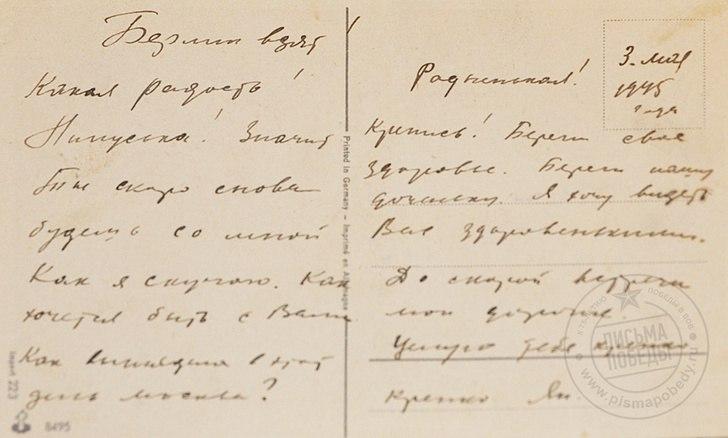 Берлин взят!
Какая радость!
Нинуська! Значит
ты скоро снова
будешь со мной
Как я скучаю. Как
хочется быть с Вами
Как выглядит в этот
день москва?
Import 223
8495
Printed in Germany — Imprimé en Allemagne
3. мая
1945
года
Родненькая!
Крепись! Береги свое
здоровье. Береги нашу
доченьку. Я хочу видеть
Вас здоровенькими.
До скорой встречи
мои дорогие
Целую тебя крепко
крепко Ян.
ПИСЬМА
ПОБЕДЫ
www.pismapobedy.ru